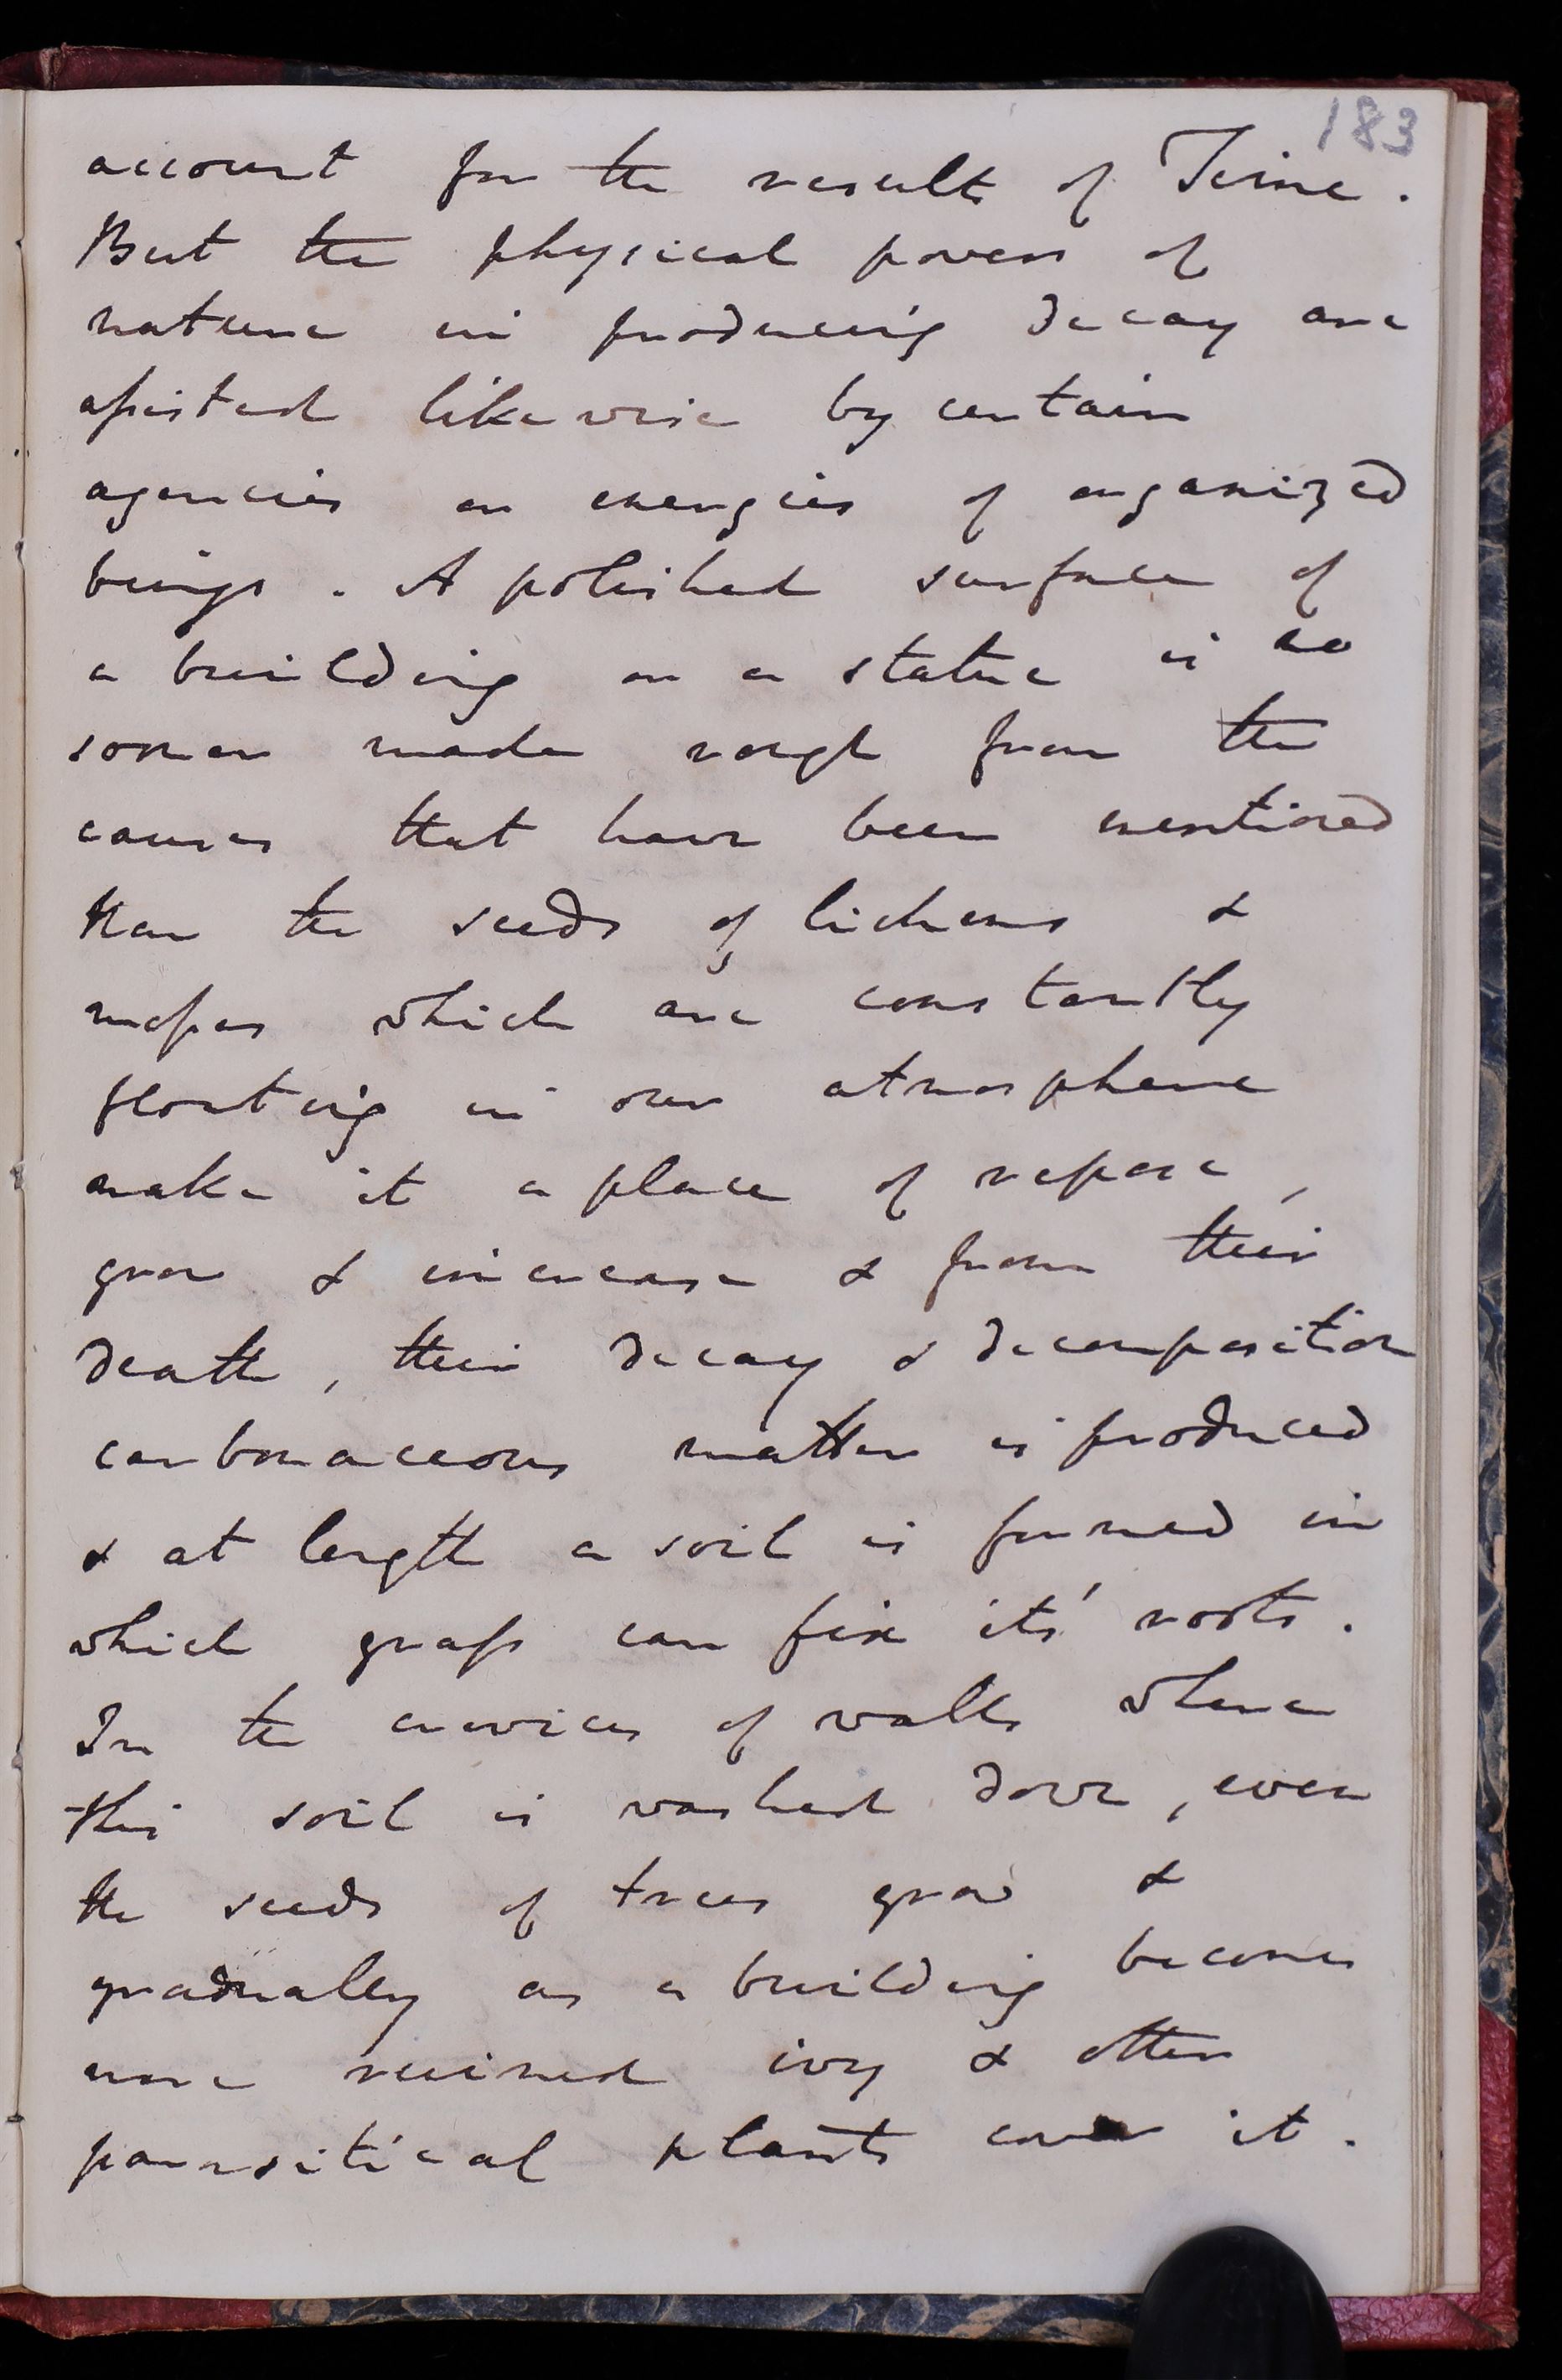 183
account for the results of Time.
But the physical powers of
nature in producing decay are
assisted likewise by certain
agencies or energies of organized
beings. A polished surface of
a building or a statue is no
sooner made rough from the
causes that have been mentioned
than the seeds of lichens &
mosses which are constantly
floating in our atmosphere
make it a place of repose,
grow & increase & from their
death, their decay & decomposition
carbonaceous matter is produced
& at length a soil is formed in
which grass can fix its' roots.
In the crevices of walls where
this soil is washed down, even
the seeds of trees grow &
gradually as a building becomes
more ruined ivy & other
parasitical plants cover it.